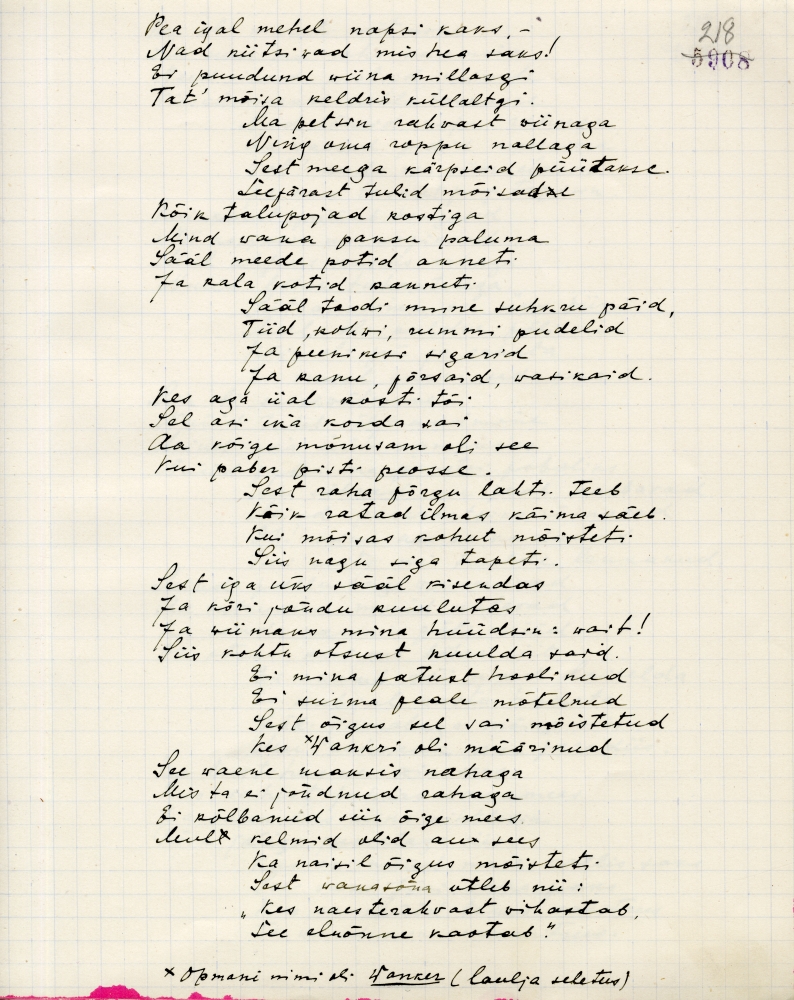 218
5908
Pea igal mehel napsi kaks, -
Nad kiitsivad mis hea saks!
Ei puudund wiina millasgi
Tat' mõisa keldris küllaltgi.
Ma petsin rahvast wiinaga
Ning oma roppu nallaga
Sest meega kärpseid püütakse.
Seepärast tulid mõisadse
Kõik talupojad kostiga
Mind wana paksu paluma
Sääl meede potid anneti
Ja kala kotid kanneti
Sääl toodi mune suhkru päid,
Tiid, kohwi, rummi pudelid
Ja peenikesi sigarid
Ja kanu, põrsaid, wasikaid.
Kes aga iial kosti tõi
Sel asi ikka korda sai
Aa kõige mõnusam oli see
Kui paber pisti peosse.
Sest raha põrgu lahti teeb
Kõik ratad ilmas käima sääb.
Kui mõisas kohut mõisteti
Siis nagu siga tapeti.
Sest iga üks sääl kisendas
Ja kõri jõudu kuulutas
Ja wiimaks mina hüüdsin: wait!
Siis kohtu otsust kuulda said.
Ei mina patust hoolinud
Ei surma peale mõtelnud
Sest õigus sel sai mõistetud
Kes ˣWankri oli määrinud
See waene maksis nahaga
Mis ta ei jõudnud rahaga
Ei kõlbanud siin õige mees
Mult kelmid olid au sees
Ka naisil õigus mõisteti
Sest wanasõna ütleb nii:
„Kes naesterahvast vihastab,
See eluõnne kaotab."
× Opmani nimi oli Wanker (laulja seletus)